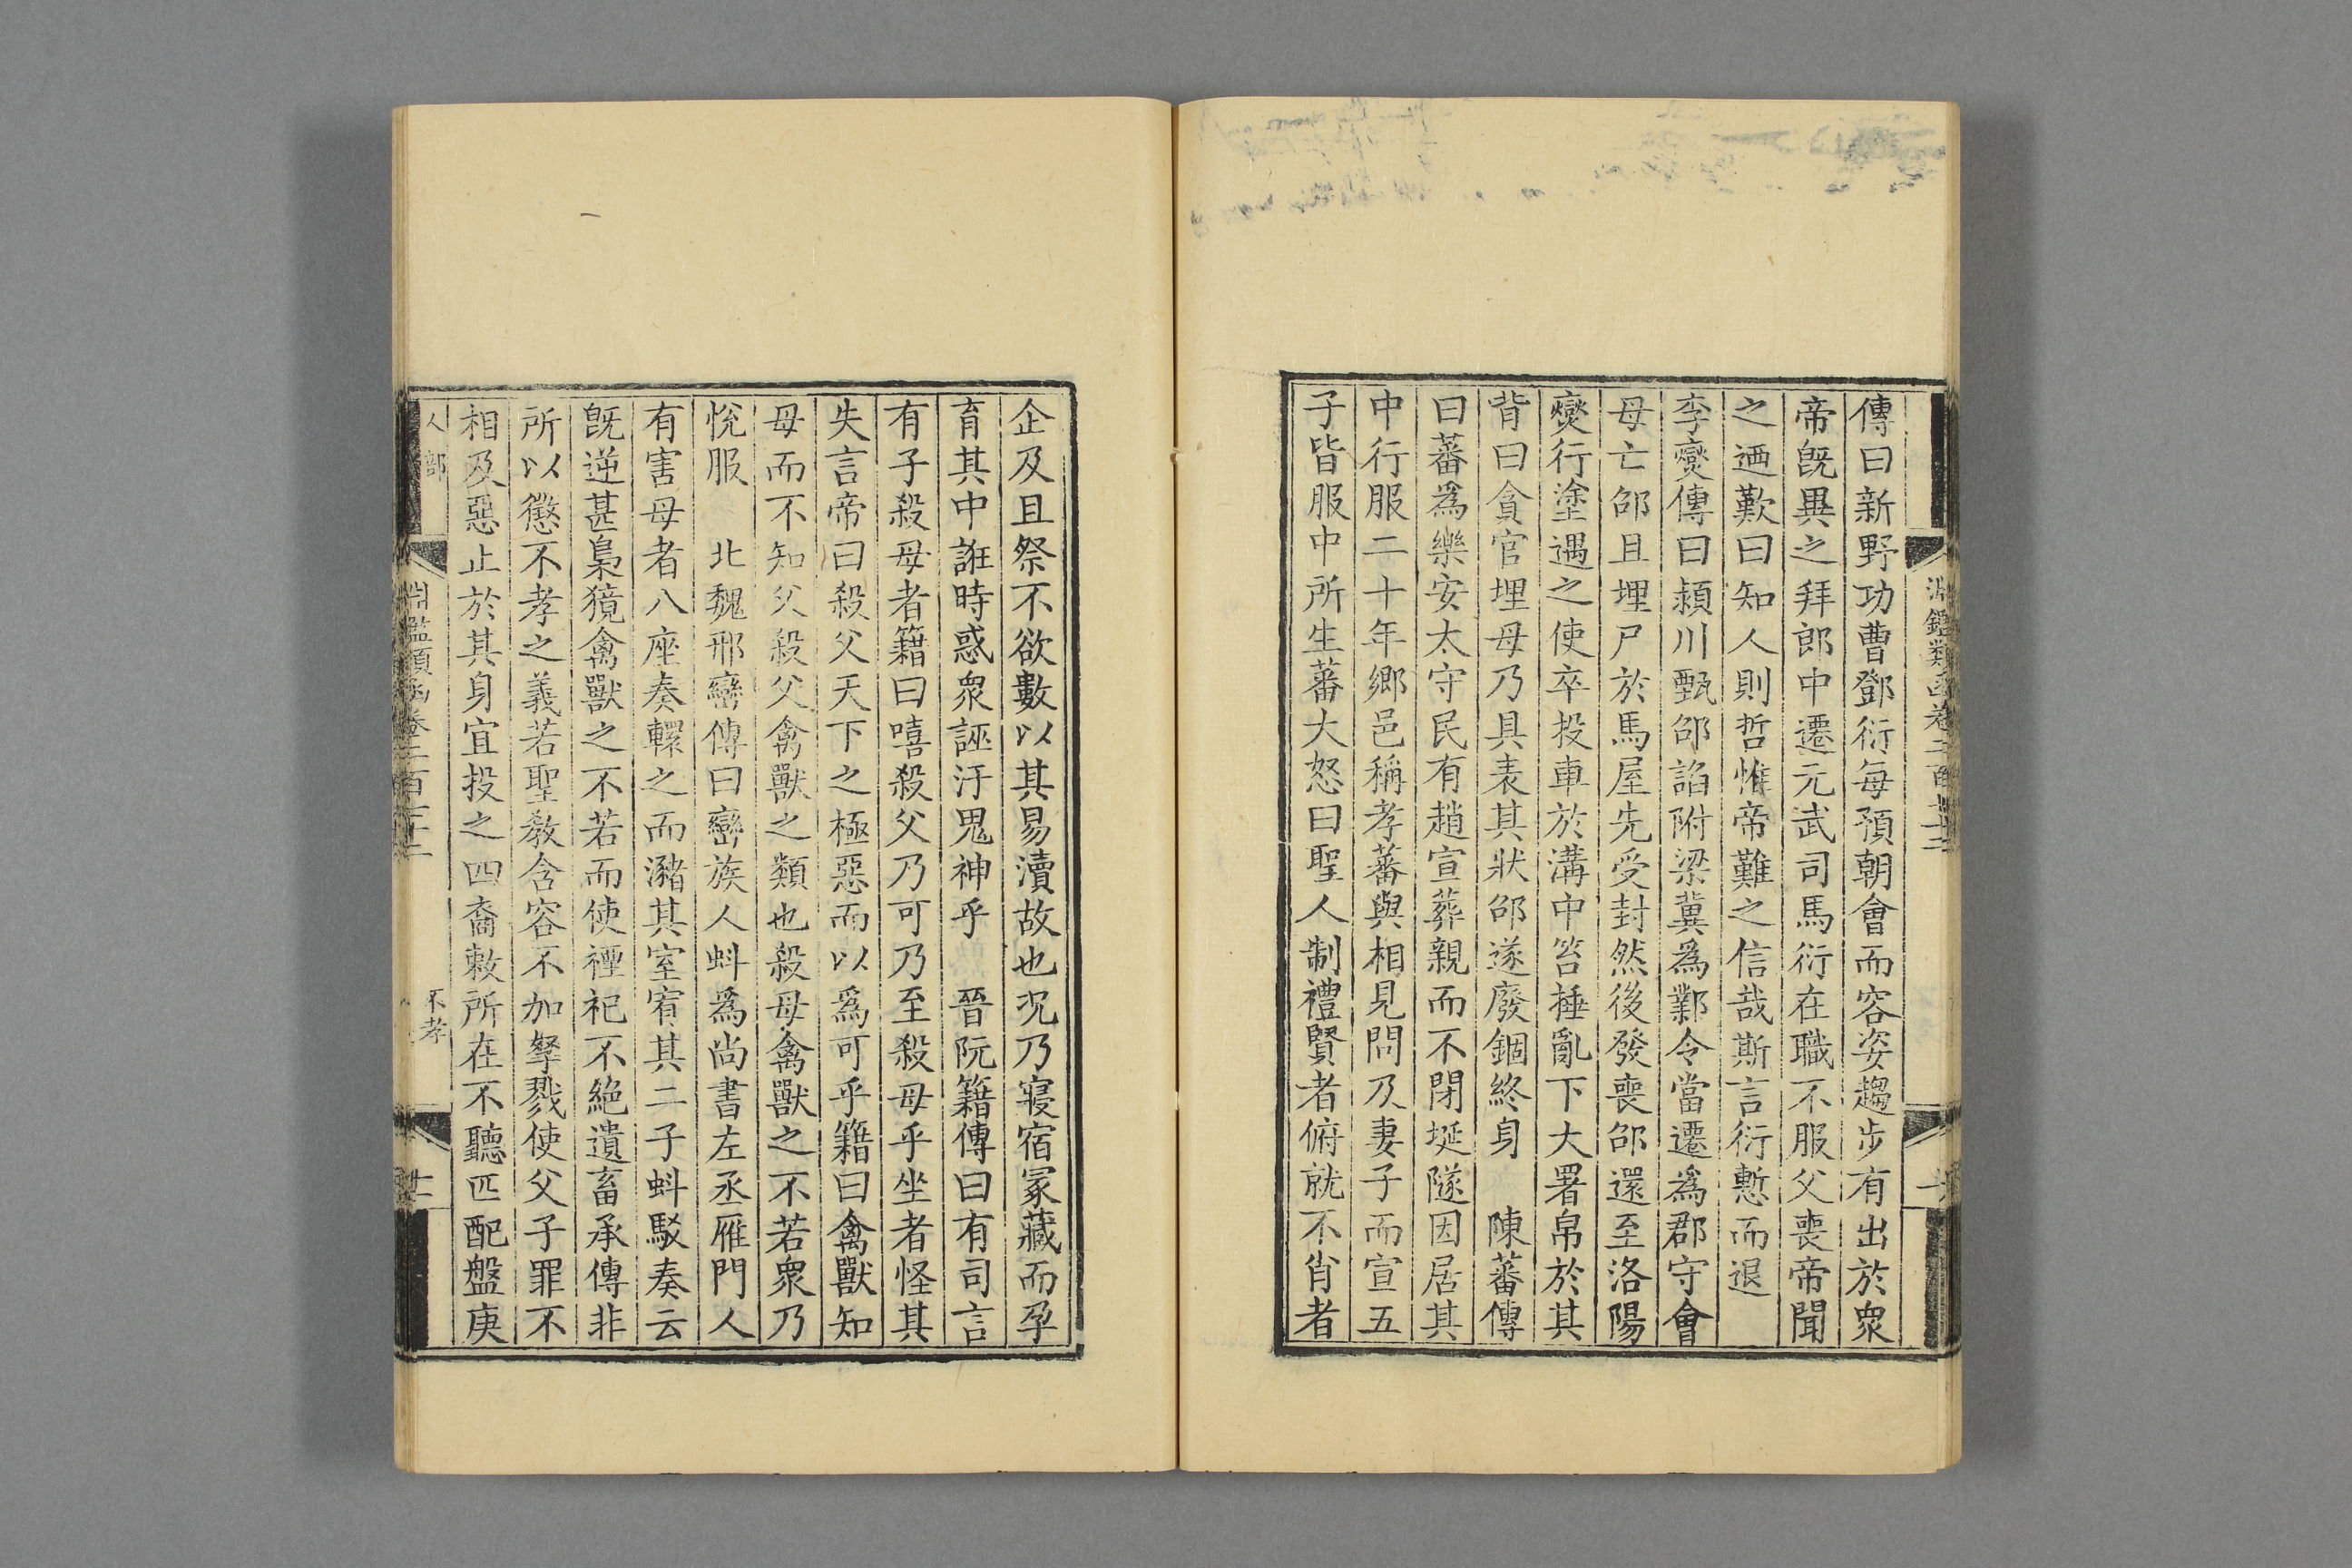 傳曰新野功曹鄧衍每預朝會而容姿趨步有出於衆
帝旣異之拜郎中遷元武司馬衍在職不服父喪帝聞
之迺歎曰知人則哲惟帝難之信哉斯言衍慙而退
李燮傳曰潁川甄邵諂附梁冀爲鄴令當遷爲郡守會
母亡邵且埋尸於馬屋先受封然後發喪邵還至洛陽
燮行塗遇之使卒投車於溝中笞捶亂下大署帛於其
背曰貪官埋母乃具表其狀邵遂廢錮終身　陳蕃傳
曰蕃爲樂安太守民有趙宣葬親而不閉埏隧因居其
中行服二十年鄉邑稱孝蕃與相見問及妻子而宣五
子皆服中所生蕃大怒曰聖人制禮賢者俯就不肖者
企及且祭不欲數以其易瀆故也況乃寢宿冢藏而孕
育其中誑時惑衆誣汙鬼神乎　晉阮籍傳曰有司言
有子殺母者籍曰嘻殺父乃可乃至殺母乎坐者怪其
失言帝曰殺父天下之極惡而以爲可乎籍曰禽獸知
母而不知父殺父禽獸之類也殺母禽獸之不若衆乃
悅服　北魏邢巒傳曰巒族人蚪爲尚書左丞雁門人
有害母者八座奏轘之而瀦其室宥其二子蚪駁奏云
旣逆甚梟獍禽獸之不若而使禋祀不絕遺畜承傳非
所以懲不孝之義若聖敎含容不加孥戮使父子罪不
相及惡止於其身宜投之四裔敕所在不聽匹配盤庚
人部
淵鑑類函卷二百七十二
不孝